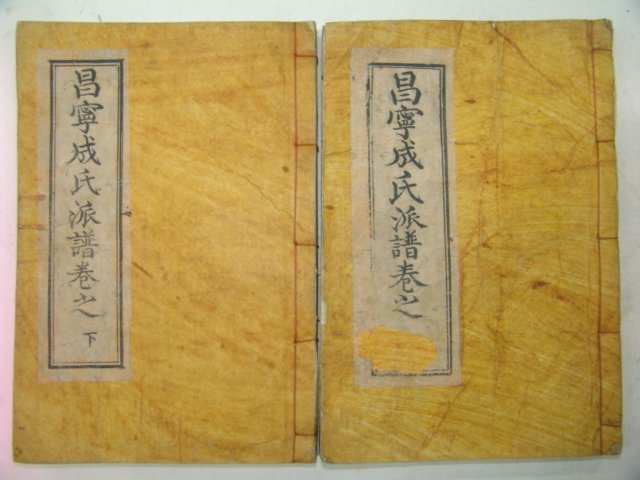 昌寧成氏派譜卷之
昌寧成氏派譜卷之下